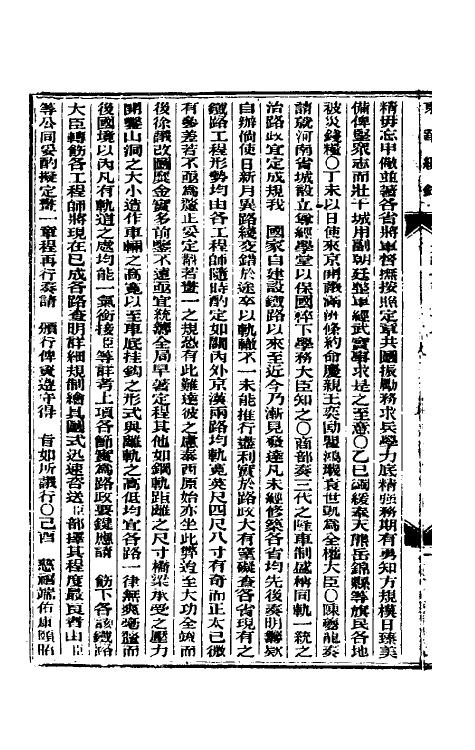 精毋忘申儆並著各省將軍督撫按照定章共圖振勵務求兵學力底精強務期有勇知方規模日臻美
備俾堅眾志而壯干城用副朝廷整軍經武實事求是之至意〇乙巳蠲緩奉天熊岳錦縣等旗民各地
被災錢糧〇丁未以日使來京開議滿洲條約命慶親王奕劻瞿鴻禨袁世凱為全權大臣〇陳夔龍奏
請就河南省城設立尊經學堂以保國粹下學務大臣知之〇商部奏三代之隆車制盛稱同軌一統之
治路政宜定成規我 國家自建設鐵路以來至近今乃漸見發達凡未經修築各省均先後奏明籌款
自辦倘使日新月異路綫交錯於途卒以軌轍不一未能推行盡利實於路政大有窒礙查各省現有之
鐵路工程形勢均由各工程師隨時酌定如關內外京漢兩路均軌寬英尺四尺八寸有奇而正太已微
有參差若不亟為釐正妥定劃若畫一之規恐有此難達彼之慮泰西原始亦坐此弊迨至大功全竣而
後徐議改圖糜金實多前鑒不遠亟宜統籌全局早著定程其他如鋼軌距離之尺寸橋梁承受之壓力
開鑿山洞之大小造作車輛之高寬以至車底挂鈎之形式與離軌之高低均宜各路一律無爽毫釐而
後國境以內凡有軌道之處均能一氣銜接臣等詳考上項各節實為路政要鍵應請 飭下各該鐵路
大臣轉飭各工程師將現在已成各路查明詳細規制繪具圖式迅速咨送臣部擇其程度最良者由臣
等公同妥酌擬定畫一章程再行奏請 頒行俾資遵守得 旨如所議行〇己酉 慈禧端佑康頤昭